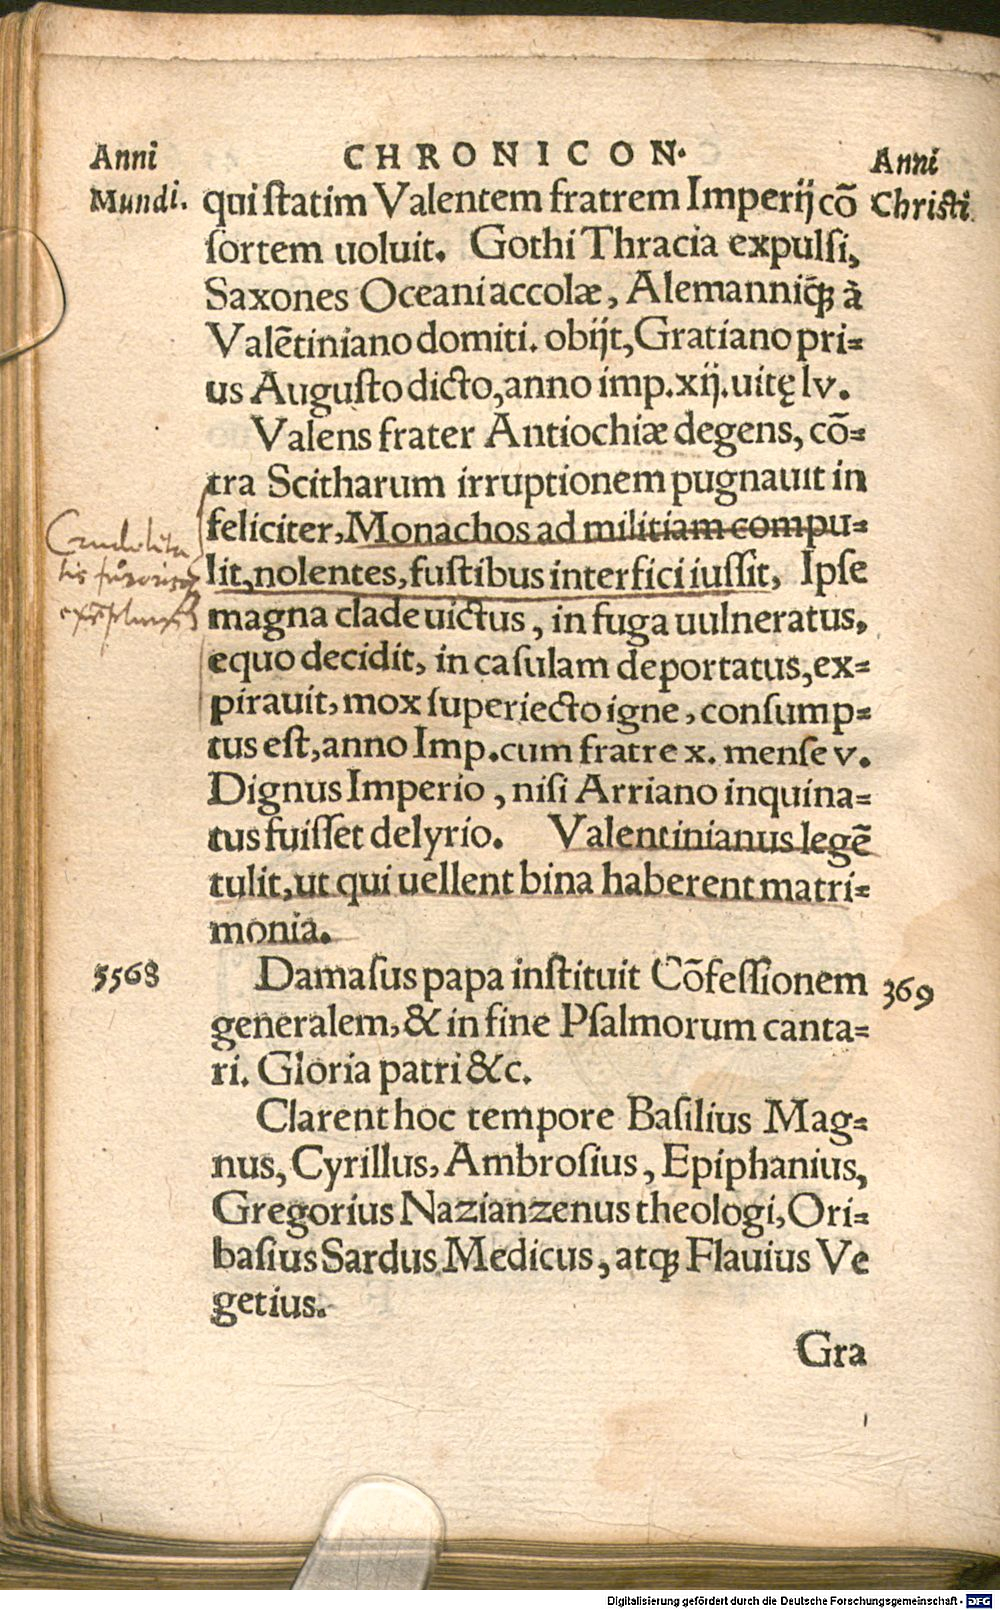 Anni CHRONICON. Anni
Mundi. quiſtatim Valentem fratrem Imperij cõ Chriſti
ſortem uoluit. Gothi Thracia expulſi,
Saxones Oceani accolæ, Alemanniq́ꝫ à
Valẽtiniano domiti. obijt, Gratiano pri=
us Auguſto dicto, anno imp. xij. uitę lv.
Valens frater Antiochiæ degens, cõ=
tra Scitharum irruptionem pugnauit in
feliciter, Monachos ad militiam compu=
lit, nolentes, fuſtibus interfici iuſſit, Ipſe
magna clade uictus, in fuga uulneratus,
equo decidit, in caſulam deportatus, ex=
pirauit, mox ſuperiecto igne, conſump=
tus eſt, anno Imp. cum fratre x. menſe v.
Dignus Imperio, niſi Arriano inquina=
tus fuiſſet delyrio. Valentinianus legẽ
tulit, ut qui uellent bina haberent matri=
monia.
5568 Damaſus papa inſtituit Cõfeſſionem 369
generalem, & in fine Pſalmorum canta=
ri. Gloria patri &c.
Clarent hoc tempore Baſilius Mag=
nus, Cyrillus, Ambroſius, Epiphanius,
Gregorius Nazianzenus theologi, Ori=
baſius Sardus Medicus, atqꝫ Flauius Ve
getius.
Gra
Digitalisierung gefördert durch die Deutsche Forschungsgemeinschaft - DFG